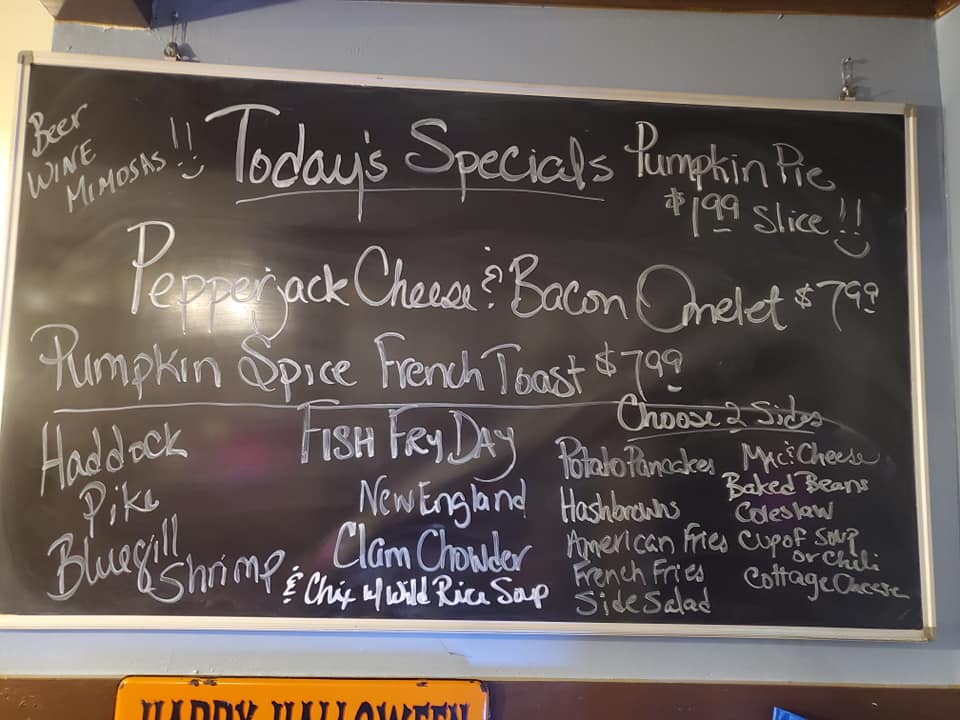 Beer
WINE
MIMOSAS !!
Today's Specials
Pumpkin Pie
$1.99 Slice!!
Pepperjack Cheese & Bacon Omelet $7.99
Pumpkin Spice French Toast $7.99
Haddock
Pike
Bluegill
Shrimp
FISH FRY DAY
New England
Clam Chowder
& Chix w/ Wild Rice Soup
Choose 2 Sides
Potato Pancakes
Hashbrowns
American Fries
French Fries
Side Salad
Mac & Cheese
Baked Beans
Coleslaw
Cup of Soup
or Chili
Cottage Cheese
HAPPY HALLOWEEN